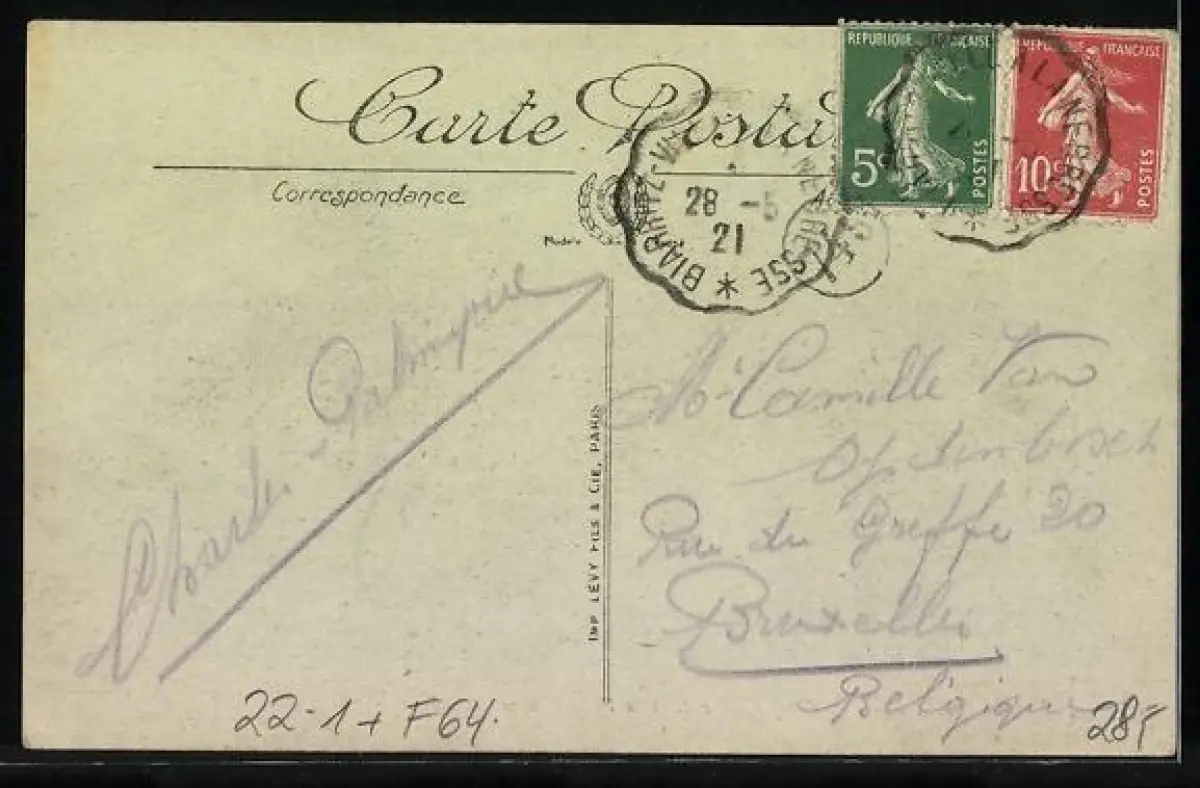 Carte Posta
Correspondance
REPUBLIQUE FRANÇAISE
5c
POSTES
REPUBLIQUE FRANÇAISE
10c
POSTES
BIARRITZ-V
SSE *
28 -5
21
Charles Palmyre
Mr Camille Van
Rue du Greffe 20
Bruxelles
Belgique
IMP LÉVY FILS & CIE, PARIS
22-1+ F64.
28,-